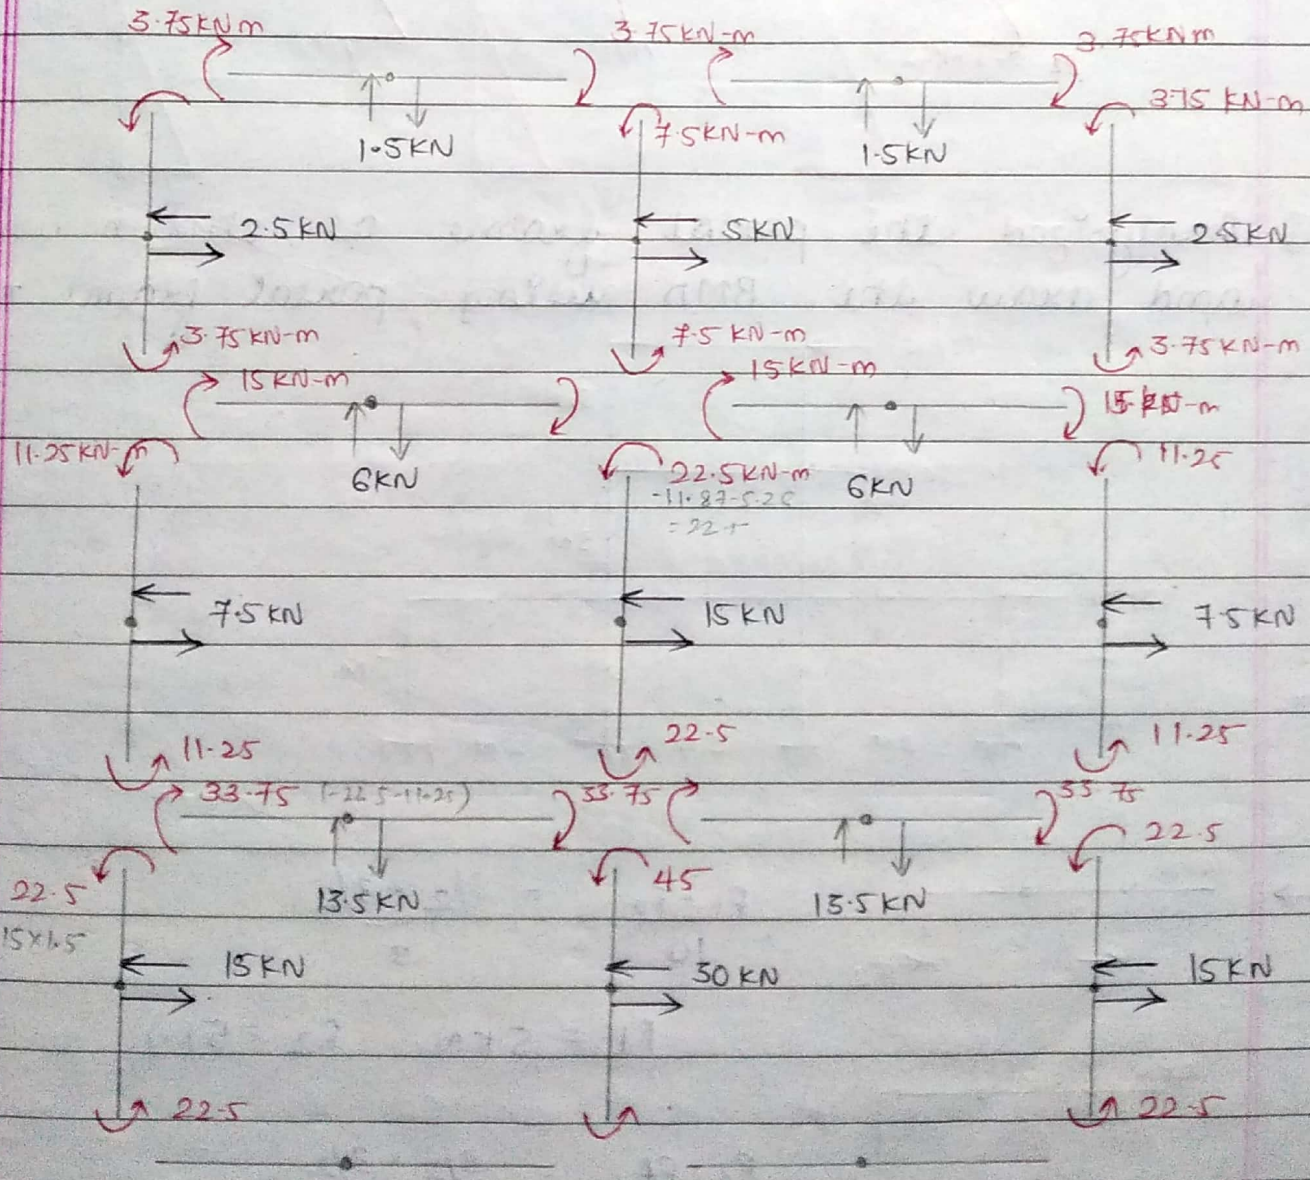 3.75KNm 3.75KN-m 3.75KNm
3.75 KN-m
7.5KN-m
1.5KN 1.5KN
2.5KN 5KN 2.5KN
3.75KN-m 7.5 KN-m 3.75KN-m
15KN-m 15KN-m 15 -m
11.25KN-m 22.5KN-m 11.25
6KN 6KN
-11.87-5.25
=22
7.5KN 15KN 7.5KN
11.25 22.5 11.25
33.75 (-22.5-11.25) 33.75 33.75
22.5 45 22.5
13.5KN 13.5KN
15x1.5
15KN 30KN 15KN
22.5 22.5